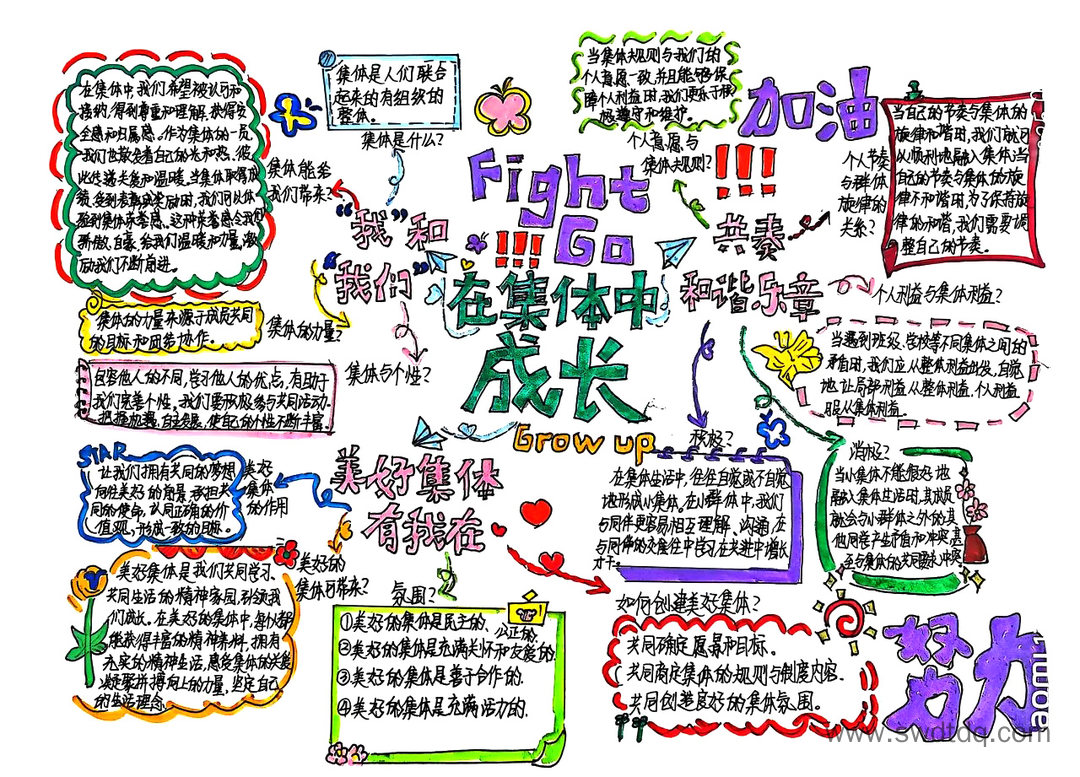 在集体中,我们希望被认可和
接纳,得到尊重和理解,获得安
全感和归属感。作为集体的一员,
我们也散发着自己的光和热,彼
此传递关爱和温暖。当集体取得成
绩,受到表彰或奖励时,我们可以体
验到集体荣誉感。这种荣誉感令我们
骄傲、自豪,给我们温暖和力量,激
励我们不断前进。
集体能给
我们带来?
集体是人们联合
起来的有组织的
整体。
集体是什么?
当集体规则与我们的
个人意愿一致,并且能够保
障个人利益时,我们更乐于积
极遵守和维护。
个人意愿与
集体规则?
加油!!!
当自己的节奏与集体的
旋律和谐时,我们就可
以顺利地融入集体;当
自己的节奏与集体的旋
律不和谐时,为了保持旋
律的和谐,我们需要调
整自己的节奏。
个人节奏
与群体
旋律的
关系?
Fight
Go!!!
“我”和
“我们”
在集体中
成长
Grow up
共奏
和谐乐章
个人利益与集体利益?
当遇到班级、学校等不同集体之间的
矛盾时,我们应从整体利益出发,自觉
地让局部利益从整体利益,个人利益
服从集体利益。
集体的力量来源于成员共同
的目标和团结协作。
集体的力量?
包容他人的不同,学习他人的优点,有助于
我们完善个性。我们要积极参与共同活动
把握机遇,自主发展,使自己的个性不断丰富。
集体与个性?
积极?
在集体生活中,往往自觉或不自觉
地形成小集体。在小群体中,我们
与同伴更容易相互理解、沟通,在
与同伴的交往中学习在共进中增长
才干。
消极?
当小集体不能很好地
融入集体生活时,其成员
就会与小群体之外的其
他同学产生矛盾和冲突,甚
至与集体的共同要求冲突
美好集体
有我在
STAR
让我们拥有共同的梦想
向往美好的前景,承担共
同的使命,认同正确的价
值观,形成一致的目标。
美好
集体
的作用
美好集体是我们共同学习、
共同生活的精神家园,引领我
们成长。在美好的集体中,每个人都
能获得丰富的精神养料,拥有
充实的精神生活,感受集体的关爱
凝聚拼搏向上的力量,坚定自己
的生活理念
美好的
集体可带来?
氛围?
①美好的集体是民主的、公正的.
②美好的集体是充满关怀和友爱的.
③美好的集体是善于合作的.
④美好的集体是充满活力的.
如何创建美好集体?
共同确定愿景和目标。
共同商定集体的规则与制度内容.
共同创造良好的集体氛围。
努力
www.swdtdq.com